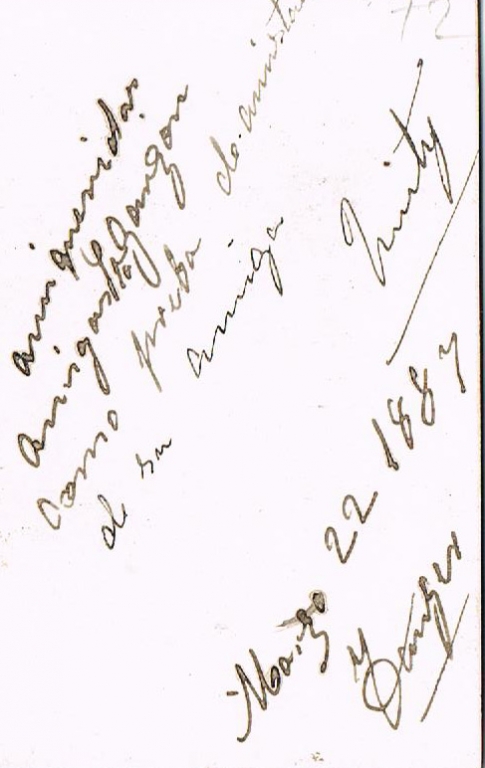 a mi querida
amiga
como prueba de amistad
de su amiga
Marzo 22 1887
Tanger